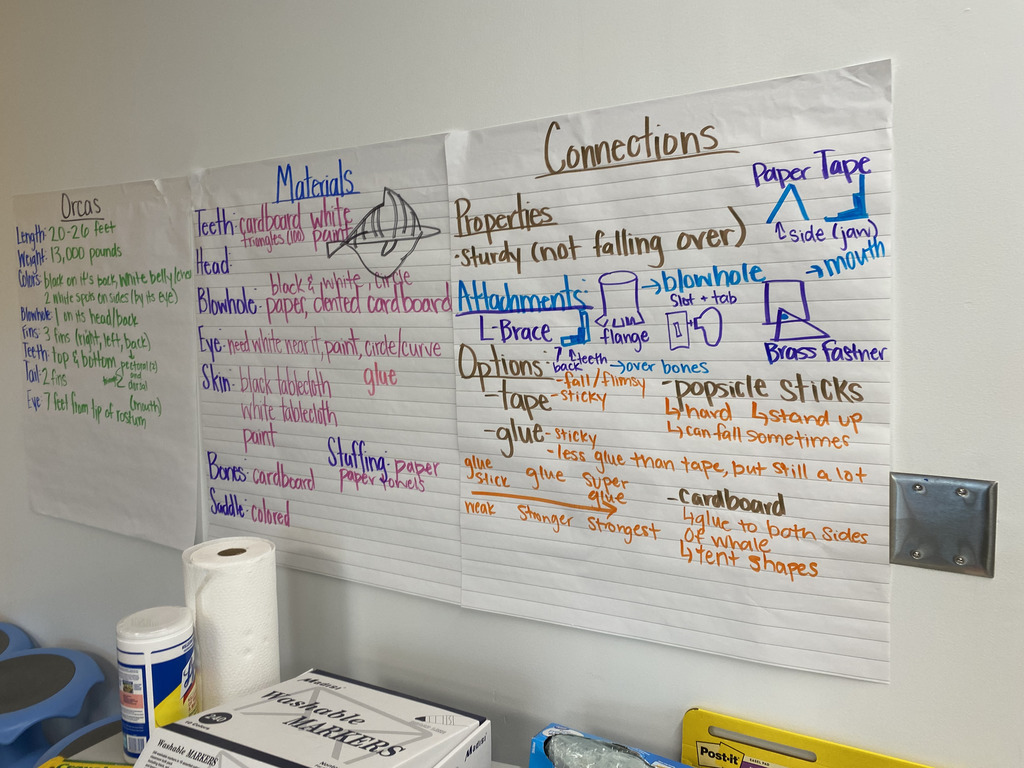 Orcas
Length: 20-26 feet
Weight: 13,000 pounds
Colors: black on it's back, white belly/
2 white spots on sides (by its eye)
Blowhole: 1 on its head/back
Fins: 3 fins (right, left, back)
Teeth: top & bottom
pectoral (2)
and
dorsal
Tail: 2 fins
(mouth)
Eye: 7 feet from tip of rostum
Materials
Teeth: cardboard white
triangles (100) paint
Head:
black & white, circle
Blowhole: paper, dented cardboard
Eye: need white near it, paint, circle/curve
Skin: black tablecloth glue
white tablecloth
paint
Stuffing: paper
paper towels
Bones: cardboard
Saddle: colored
Connections
Paper Tape
Properties
↑side (jaw)
·sturdy (not falling over)
Attachments:
→blowhole
→mouth
Slot + tab
L-Brace
flange
Brass Fastner
↑teeth
back
→over bones
Options:
-tape
-fall/flimsy
-sticky
-glue
-sticky
-less glue than tape, but still a lot
glue stick glue super glue
weak stronger strongest
-popsicle sticks
↳hard ↳stand up
↳can fall sometimes
-cardboard
↳glue to both sides
of whale
↳tent shapes
240
Washable
MARKERS
Washable MARKERS
Post-it